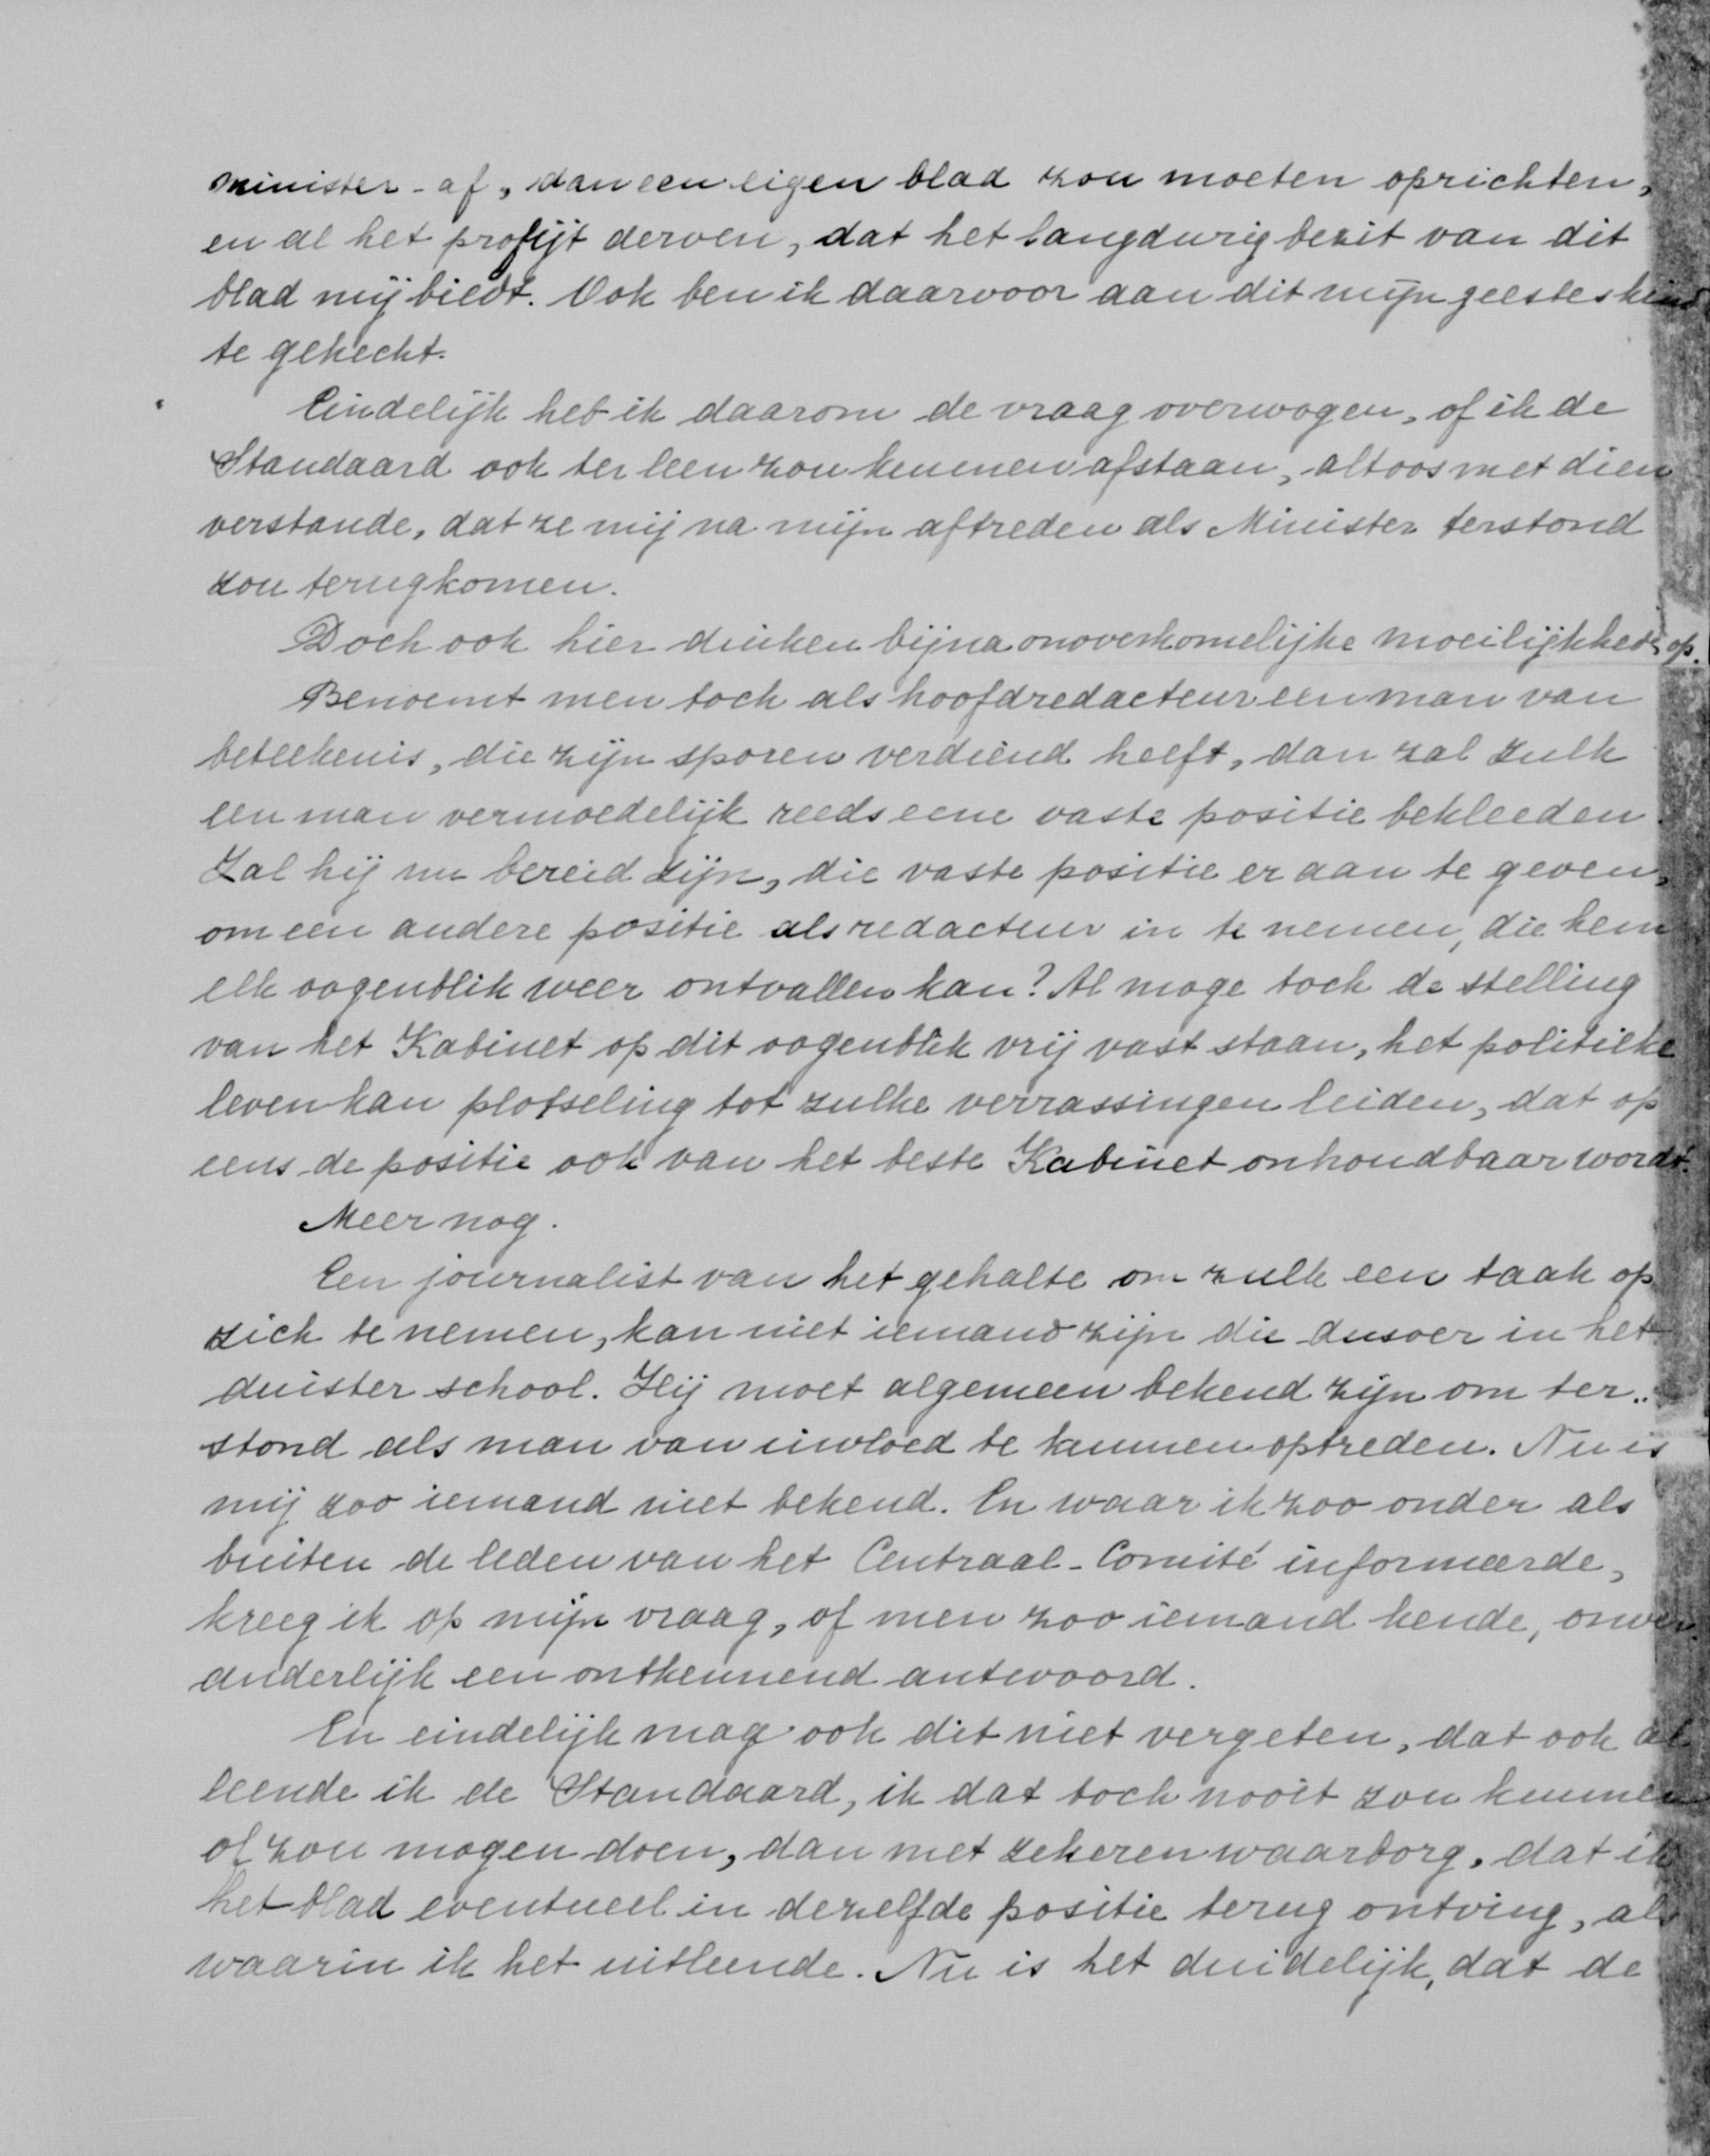 minister-af, dan een eigen blad zou moeten oprichten,
en al het profijt derven, dat het langdurig bezit van dit
blad mij biedt. Ook ben ik daarvoor aan dit mijn geesteskind
te gehecht.
Eindelijk heb ik daarom de vraag overwogen, of ik de
Standaard ook ter leen zou kunnen afstaan, altoos met dien
verstande, dat ze mij na mijn aftreden als Minister terstond
zou terugkomen.
Doch ook hier duiken bijna onoverkomelijke moeilijkhedn op.
Benoemt men toch als hoofdredacteur een man van
beteekenis, die zijn sporen verdiend heeft, dan zal zulk
een man vermoedelijk reeds eene vaste positie bekleeden.
Zal hij nu bereid zijn, die vaste positie er aan te geven,
om een andere positie als redacteur in te nemen, die hem
elk oogenblik weer ontvallen kan? Al moge toch de stelling
van het Kabinet op dit oogenblik vrij vast staan, het politieke
leven kan plotseling tot zulke verrassingen leiden, dat op
eens de positie ook van het beste Kabinet onhoudbaar wordt.
Meer nog.
Een journalist van het gehalte om zulk een taak op
zich te nemen, kan niet iemand zijn die dusver in het
duister school. Hij moet algemeen bekend zijn om ter..
stond als man van invloed te kunnen optreden. Nu is
mij zoo iemand niet bekend. En waar ik zoo onder als
buiten de leden van het Centraal-Comité informeerde,
kreeg ik op mijn vraag, of men zoo iemand kende, onver-
anderlijk een ontkennend antwoord.
En eindelijk mag ook dit niet vergeten, dat ook al
leende ik de Standaard, ik dat toch nooit zou kunnen
of zou mogen doen, dan met zekeren waarborg, dat ik
het blad eventueel in dezelfde positie terug ontving, als
waarin ik het uitleende. Nu is het duidelijk, dat de